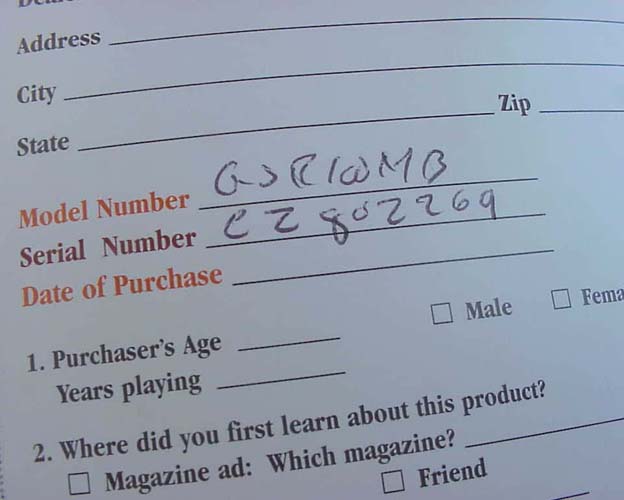 Address
City
State Zip
Model Number GSR10MB
Serial Number CZ802269
Date of Purchase
Male Fema
1. Purchaser's Age
Years playing
2. Where did you first learn about this product?
Magazine ad: Which magazine?
Friend